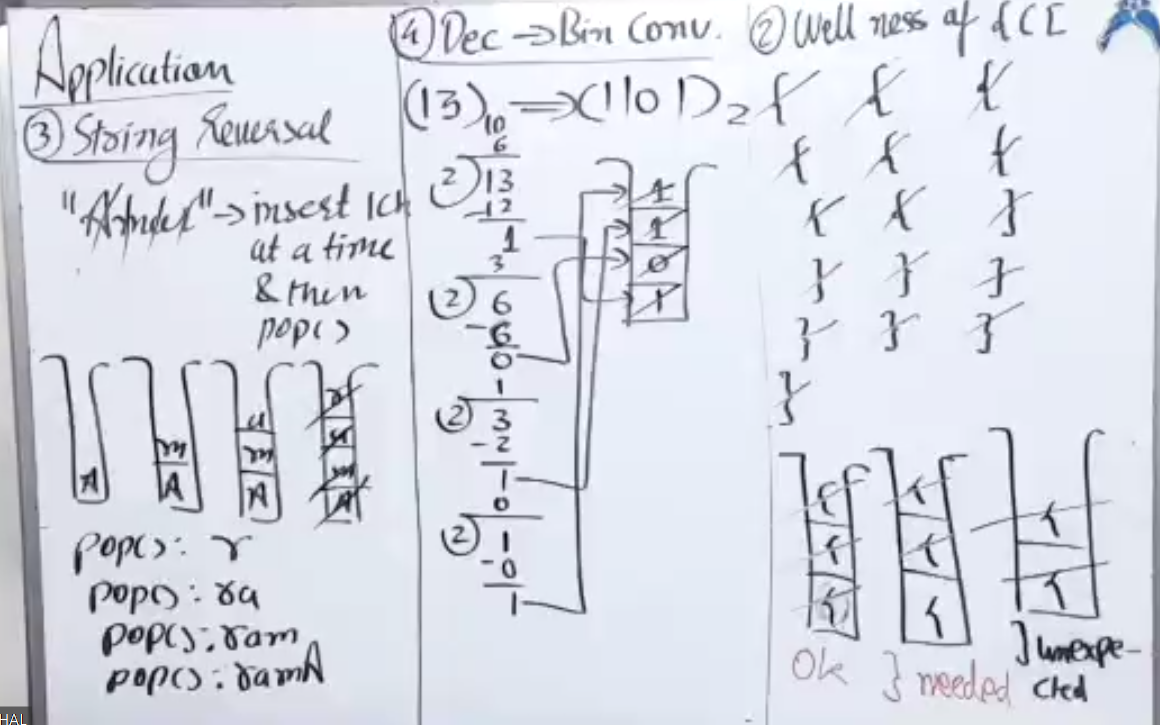 Application
③ String Reversal
→ insert 1ch
at a time
& then
pop()
A
m
A
a
m
A
r
a
m
A
pop(): r
pop(): ra
pop(): ram
pop(): ramA
④ Dec → Bin Conv.
(13)10 ⇒ (1101)2
6
2) 13
-12
1
3
2) 6
-6
0
1
2) 3
-2
1
0
2) 1
-0
1
1
1
0
1
② Wellness of
{ { {
{ { {
{ { }
} } }
} } }
}
{
{
{
Ok
{
{
{
} needed
{
{
} Unexpe-
cted
HAL